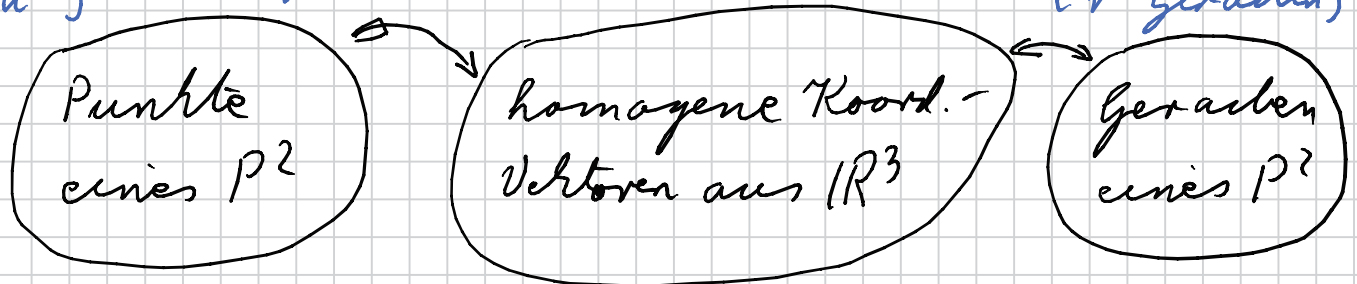 Punkte
eines P²
homogene Koord.-
Vektoren aus ℝ³
Geraden
eines P²